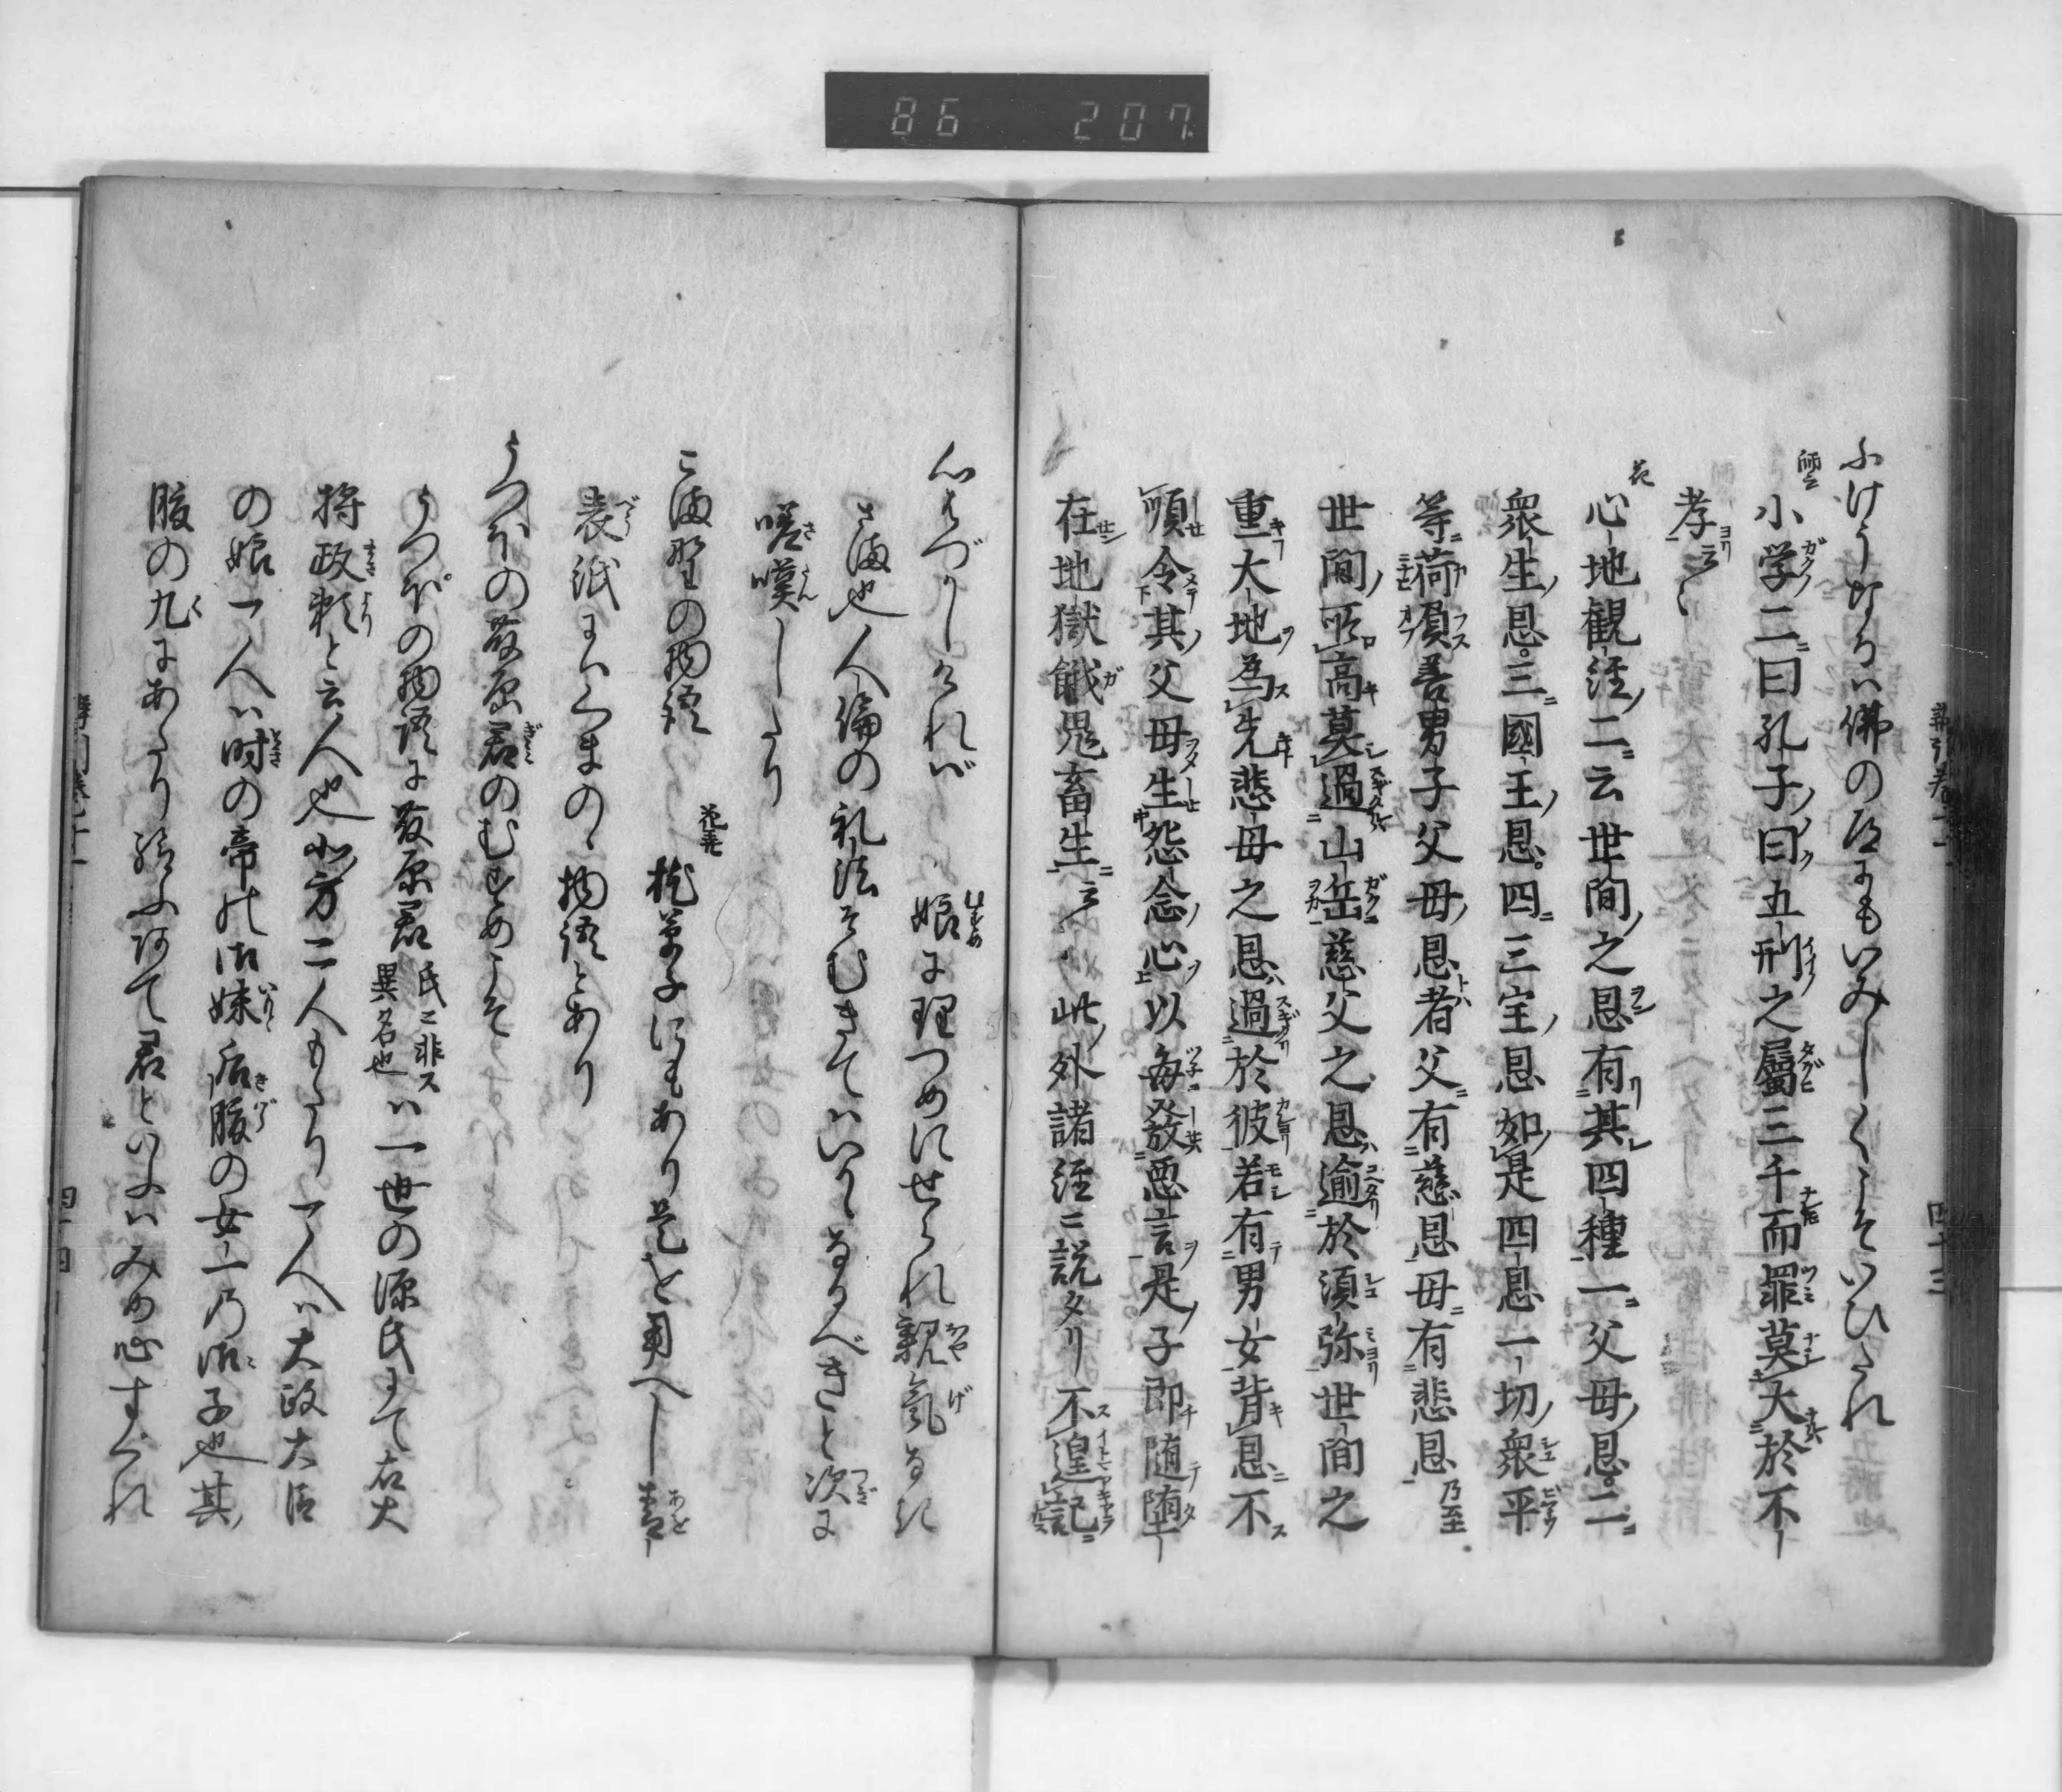 86 207
ふけうなるハ佛の道にもいみしくこそいひたれ
師云 小学二曰孔子曰五刑之屬三千而罪莫大於不
孝云々
花 心地観経二云世間之恩有其四種一父母恩。二
衆生恩。三國王恩。四三宝恩如是四恩一切衆平
等荷負善男子父母恩者父有慈恩母有悲恩乃至
世間所高莫過山岳慈父之恩逾於須弥世間之
重大地為先悲母之恩過於彼若有男女背恩不
順令其父母生怨念心以毎發悪言是子即随堕
在地獄餓鬼畜生云々此外諸経ニ説タリ不遑記
心はづかしけれバ 娘に理つめにせられ親気なき
さま也人倫の礼法そむきてハいかゝなるべきと次に
嗟嘆したり
こま野の物語 花鳥 枕草子にもあり是を用へし
表紙にハくまのゝ物語とあり
うつほの藤原君のむすめこそ
うつほの物語に藤原君氏ニ非ス異名也ハ一世の源氏にて右大
将政頼と云人也北方二人もたり一人ハ大政大臣
の娘一人ハ時の帝の御妹后腹の女一の御子也其
腹の九にあたり給ふ阿て君といふハみめ心すぐれ
四十三
四十四